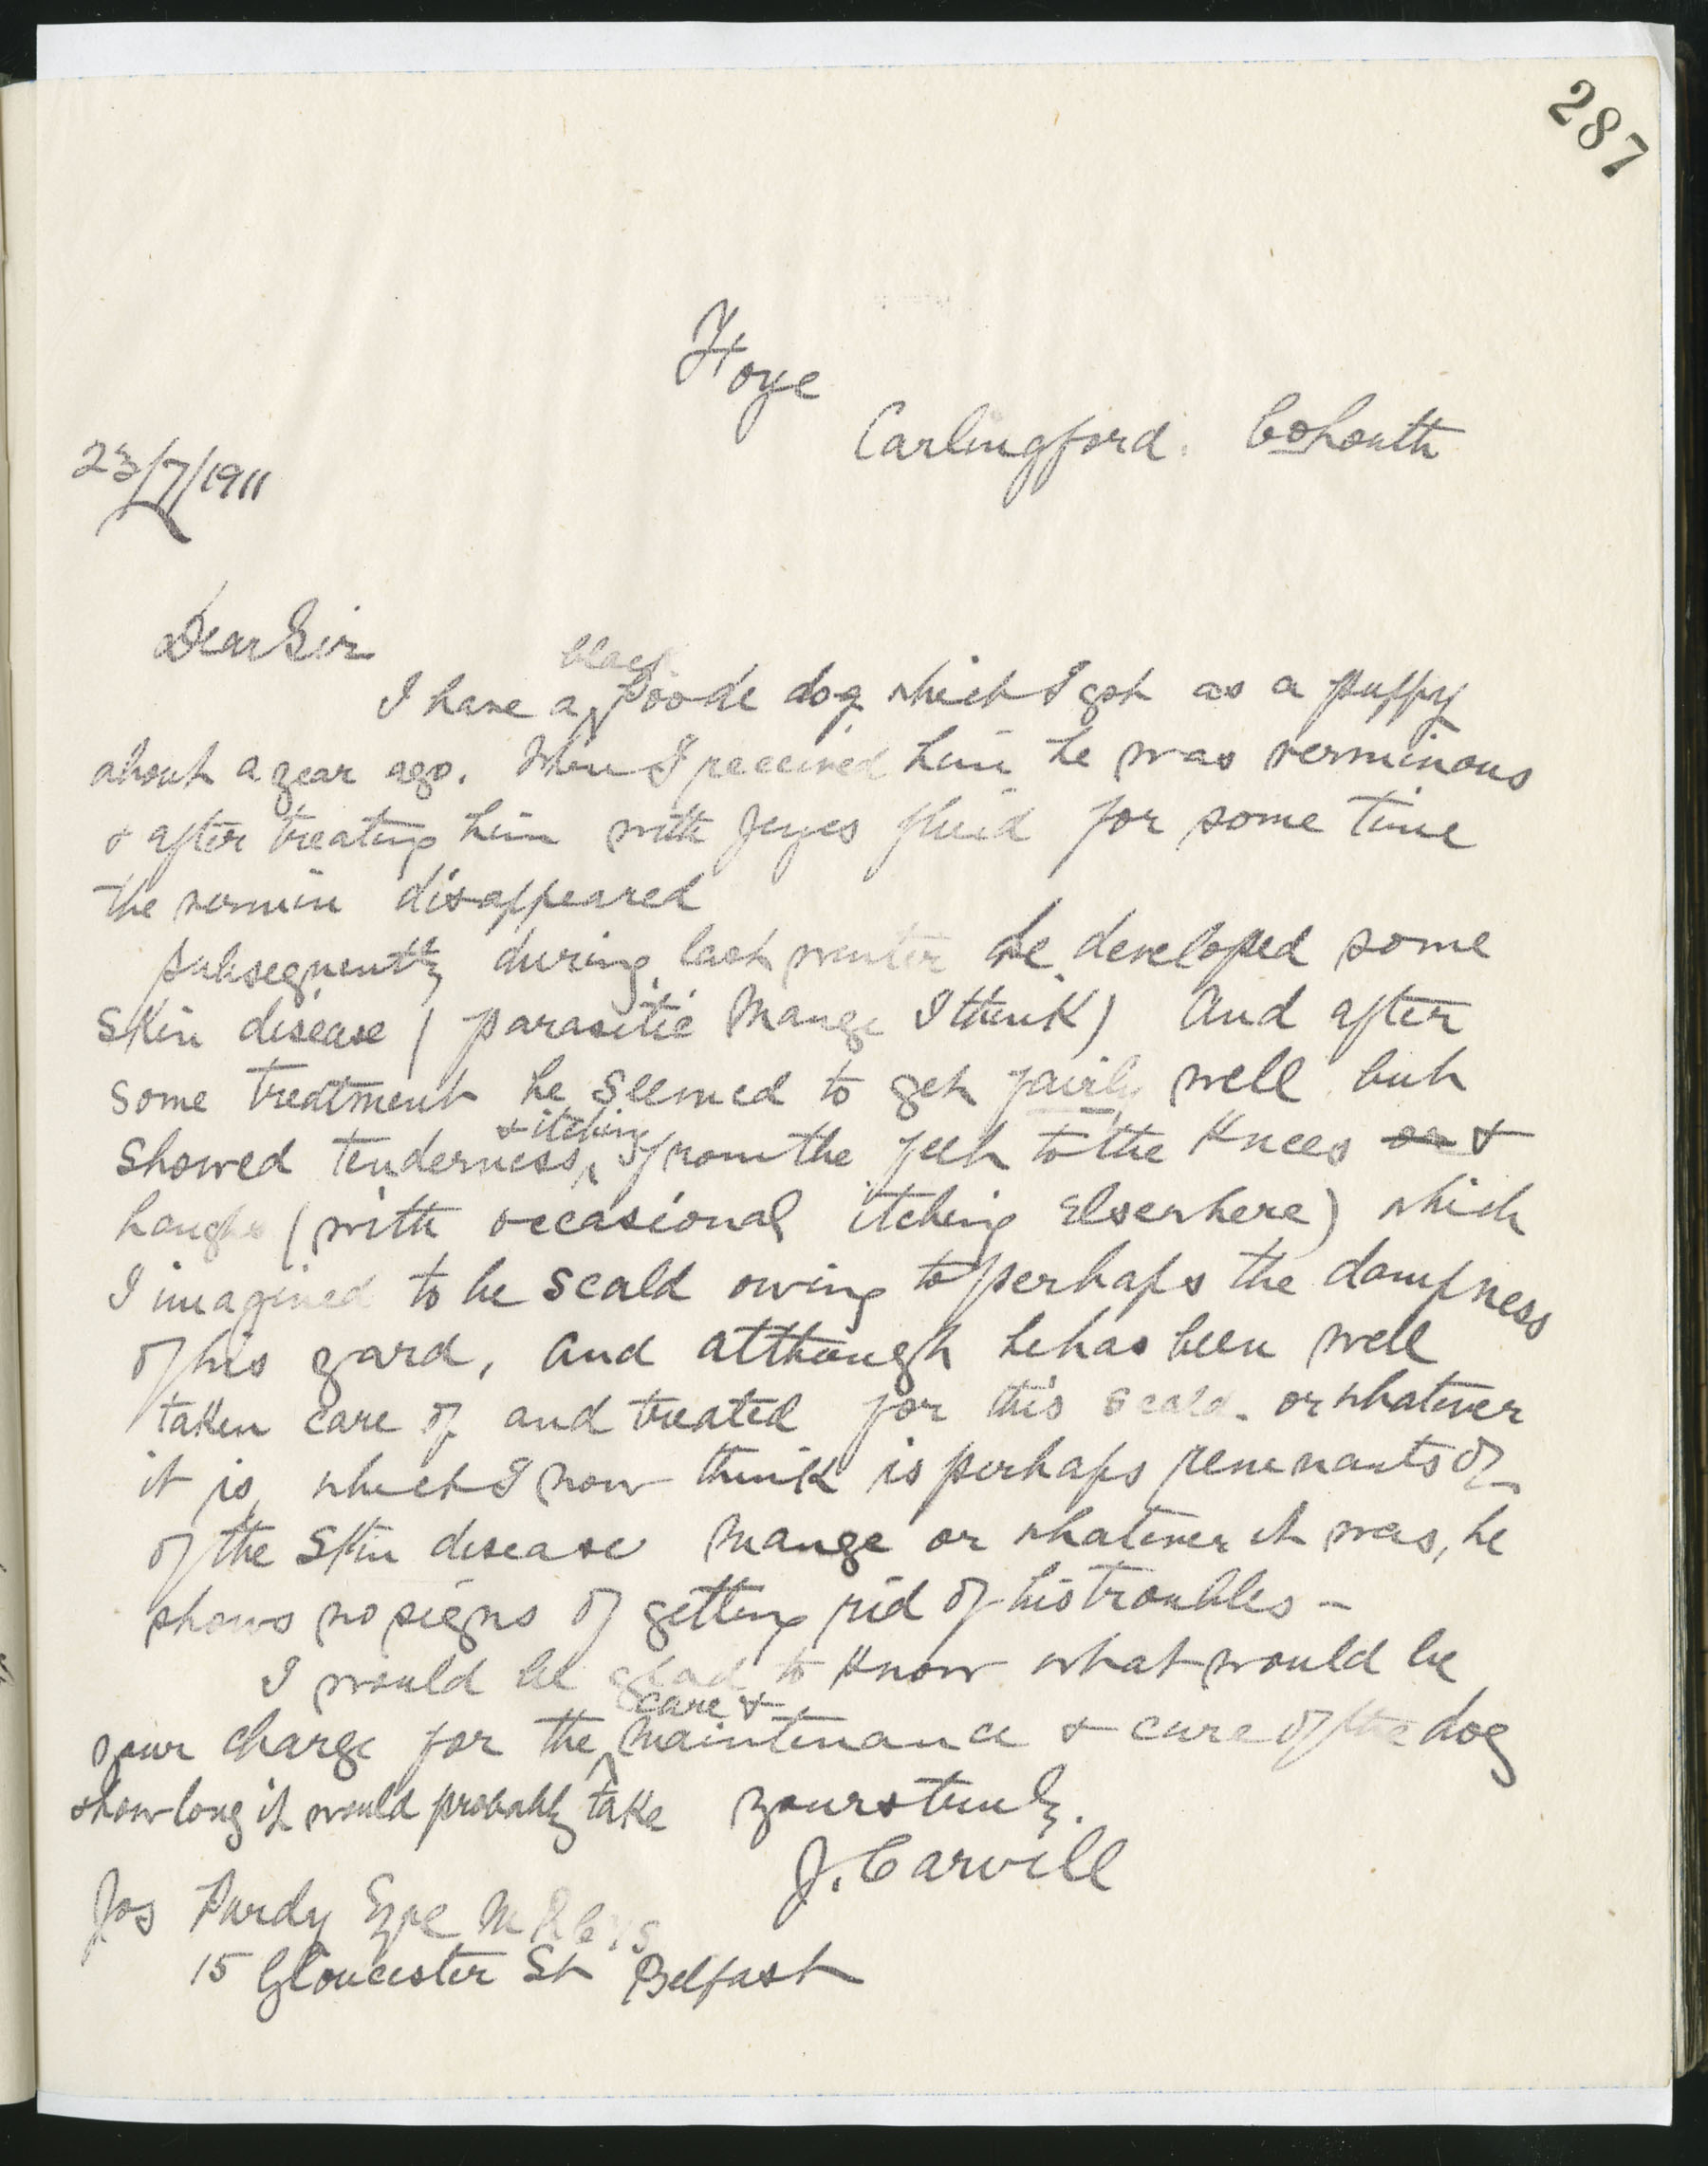 287
Foye
Carlingford. Co Louth
23/7/1911
Dear Sir
black
I have a poodle dog which I got as a puppy
about a year ago. When I received him he was verminous
& after treating him with Jeyes fluid for some time
the vermin disappeared
subsequently during last winter he developed some
skin disease (parasitic Mange I think) And after
some treatment he seemed to get fairly well but
& itching
showed tenderness from the feet to the knees or &
houghs (with occasional itching elsewhere) which
I imagined to be scald owing to perhaps the dampness
of his yard, and although he has been well
taken care of and treated for this scald - or whatever
it is, which I now think is perhaps remnants of
of the skin disease Mange or whatever it was, he
shows no signs of getting rid of his troubles -
I would be glad to know what would be
care &
your charge for the maintenance & cure of the dog
& how long it would probably take yours truly.
J. Carvill
Jos Purdy Esqre M R C V S
15 Gloucester St Belfast